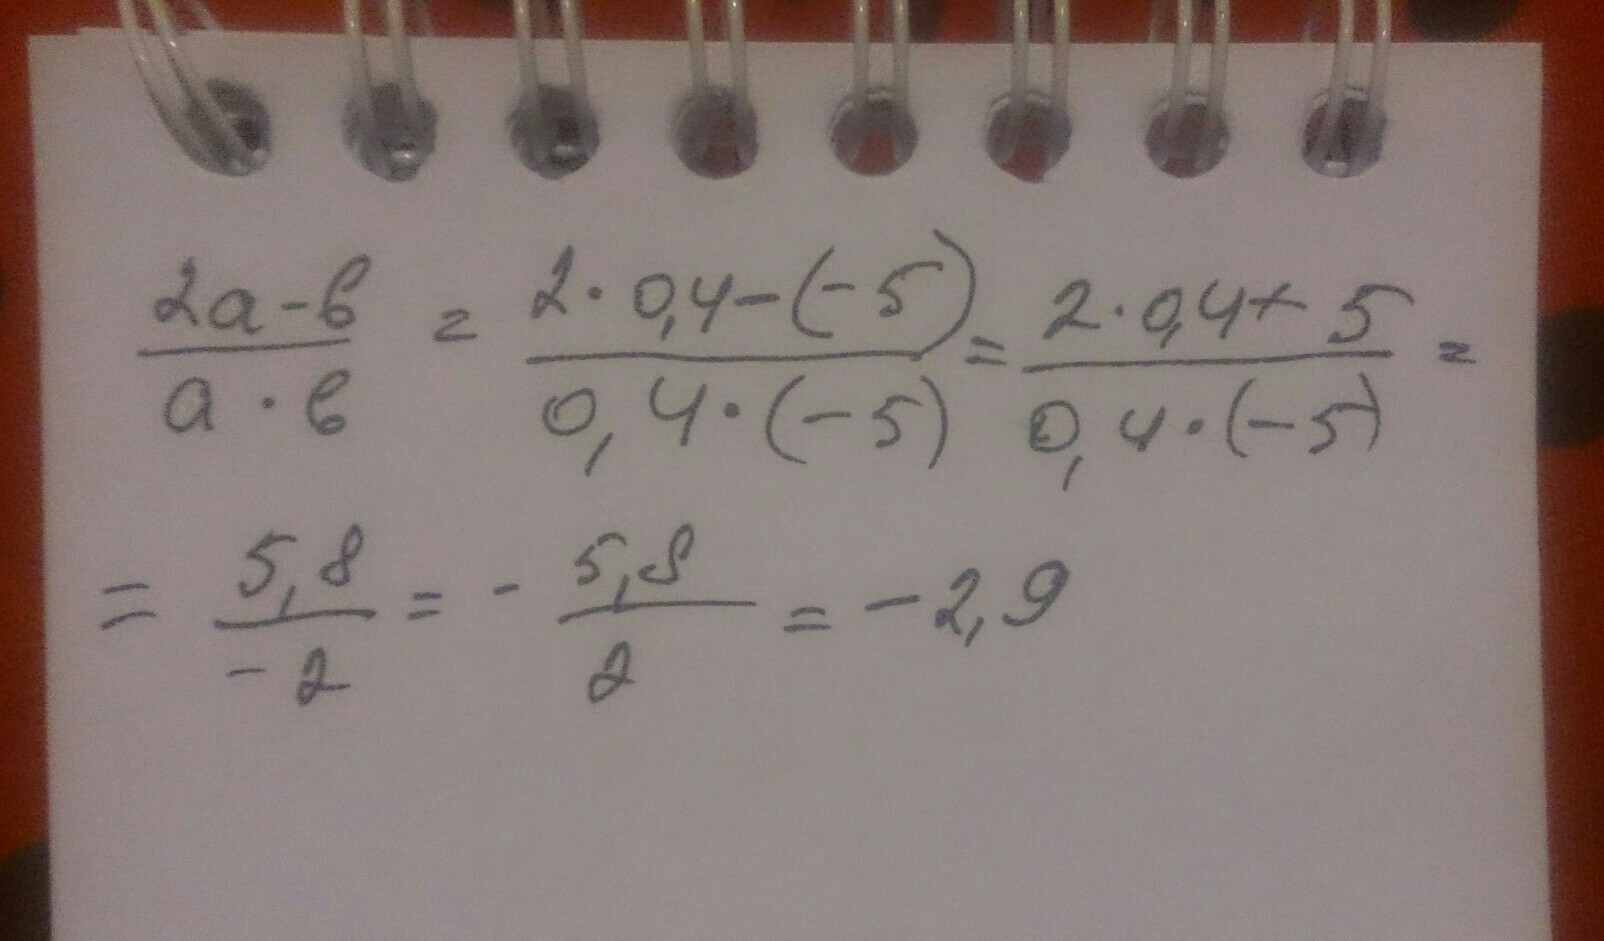 (2a-b)/(a·b) = (2·0,4-(-5))/(0,4·(-5)) = (2·0,4+5)/(0,4·(-5)) =
= 5,8/-2 = - 5,8/2 = -2,9